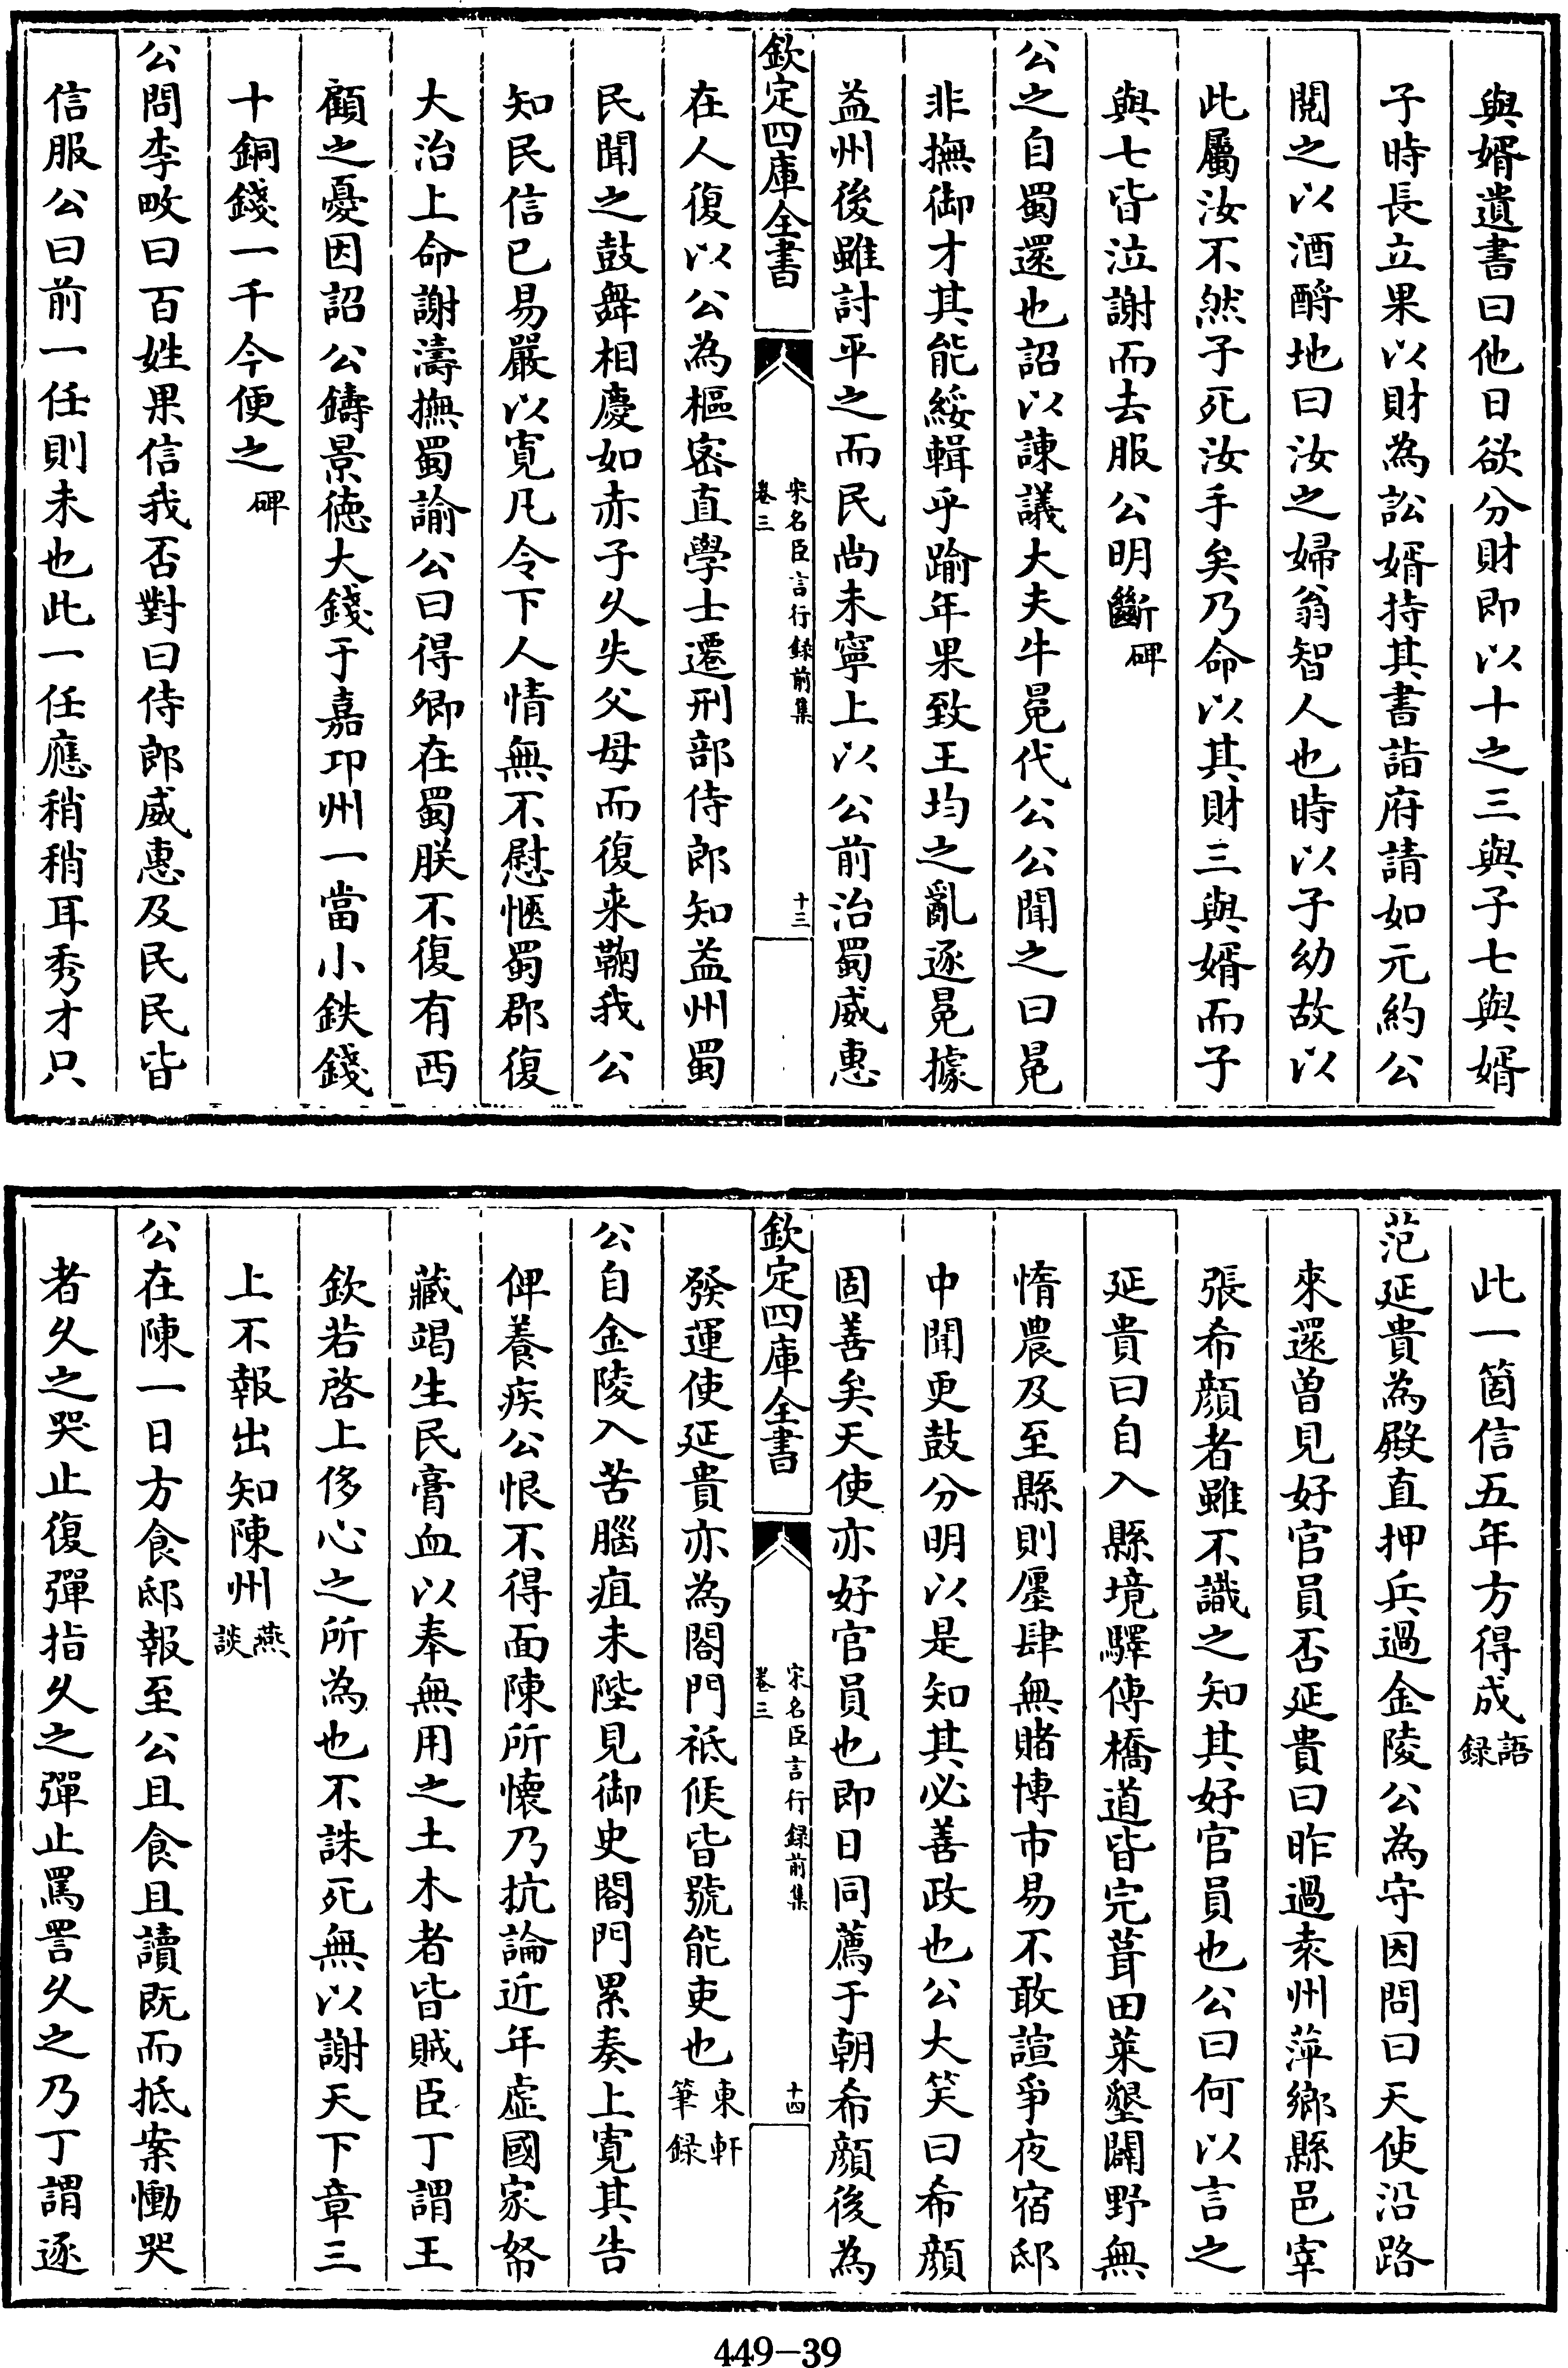 與婿遺書曰他日欲分財即以十之三與子七與婿
子時長立果以財為訟婿持其書詣府請如元約公
閱之以酒酹地曰汝之婦翁智人也時以子幼故以
此屬汝不然子死汝手矣乃命以其財三與婿而子
與七皆泣謝而去服公明斷碑
公之自蜀還也詔以諫議大夫牛冕代公公聞之曰冕
非撫御才其能綏輯乎踰年果致王均之亂逐冕據
益州後雖討平之而民尚未寧上以公前治蜀威惠
欽定四庫全書
宋名臣言行録前集
卷三
十三
在人復以公為樞密直學士遷刑部侍郎知益州蜀
民聞之鼓舞相慶如赤子乆失父母而復来鞠我公
知民信已易嚴以寛凡令下人情無不慰愜蜀郡復
大治上命謝濤撫蜀諭公曰得卿在蜀朕不復有西
顧之憂因詔公鑄景徳大錢于嘉卭州一當小鉄錢
十銅錢一千今便之碑
公問李畋曰百姓果信我否對曰侍郎威惠及民民皆
信服公曰前一任則未也此一任應稍稍耳秀才只
此一箇信五年方得成語
録
范延貴為殿直押兵過金陵公為守因問曰天使沿路
來還曽見好官員否延貴曰昨過袁州萍鄉縣邑宰
張希顔者雖不識之知其好官員也公曰何以言之
延貴曰自入縣境驛傳橋道皆完葺田萊墾闢野無
惰農及至縣則廛肆無賭博市易不敢諠爭夜宿邸
中聞更鼓分明以是知其必善政也公大笑曰希顔
固善矣天使亦好官員也即日同薦于朝希顔後為
欽定四庫全書
宋名臣言行録前集
卷三
十四
發運使延貴亦為閤門祗候皆號能吏也東軒
筆録
公自金陵入苦腦疽未陛見御史閤門累奏上寛其告
俾養疾公恨不得面陳所懷乃抗論近年虚國家帑
藏竭生民膏血以奉無用之土木者皆賊臣丁謂王
欽若啓上侈心之所為也不誅死無以謝天下章三
上不報出知陳州燕
談
公在陳一日方食邸報至公且食且讀既而抵案慟哭
者乆之哭止復彈指乆之彈止罵詈乆之乃丁謂逐
449-39